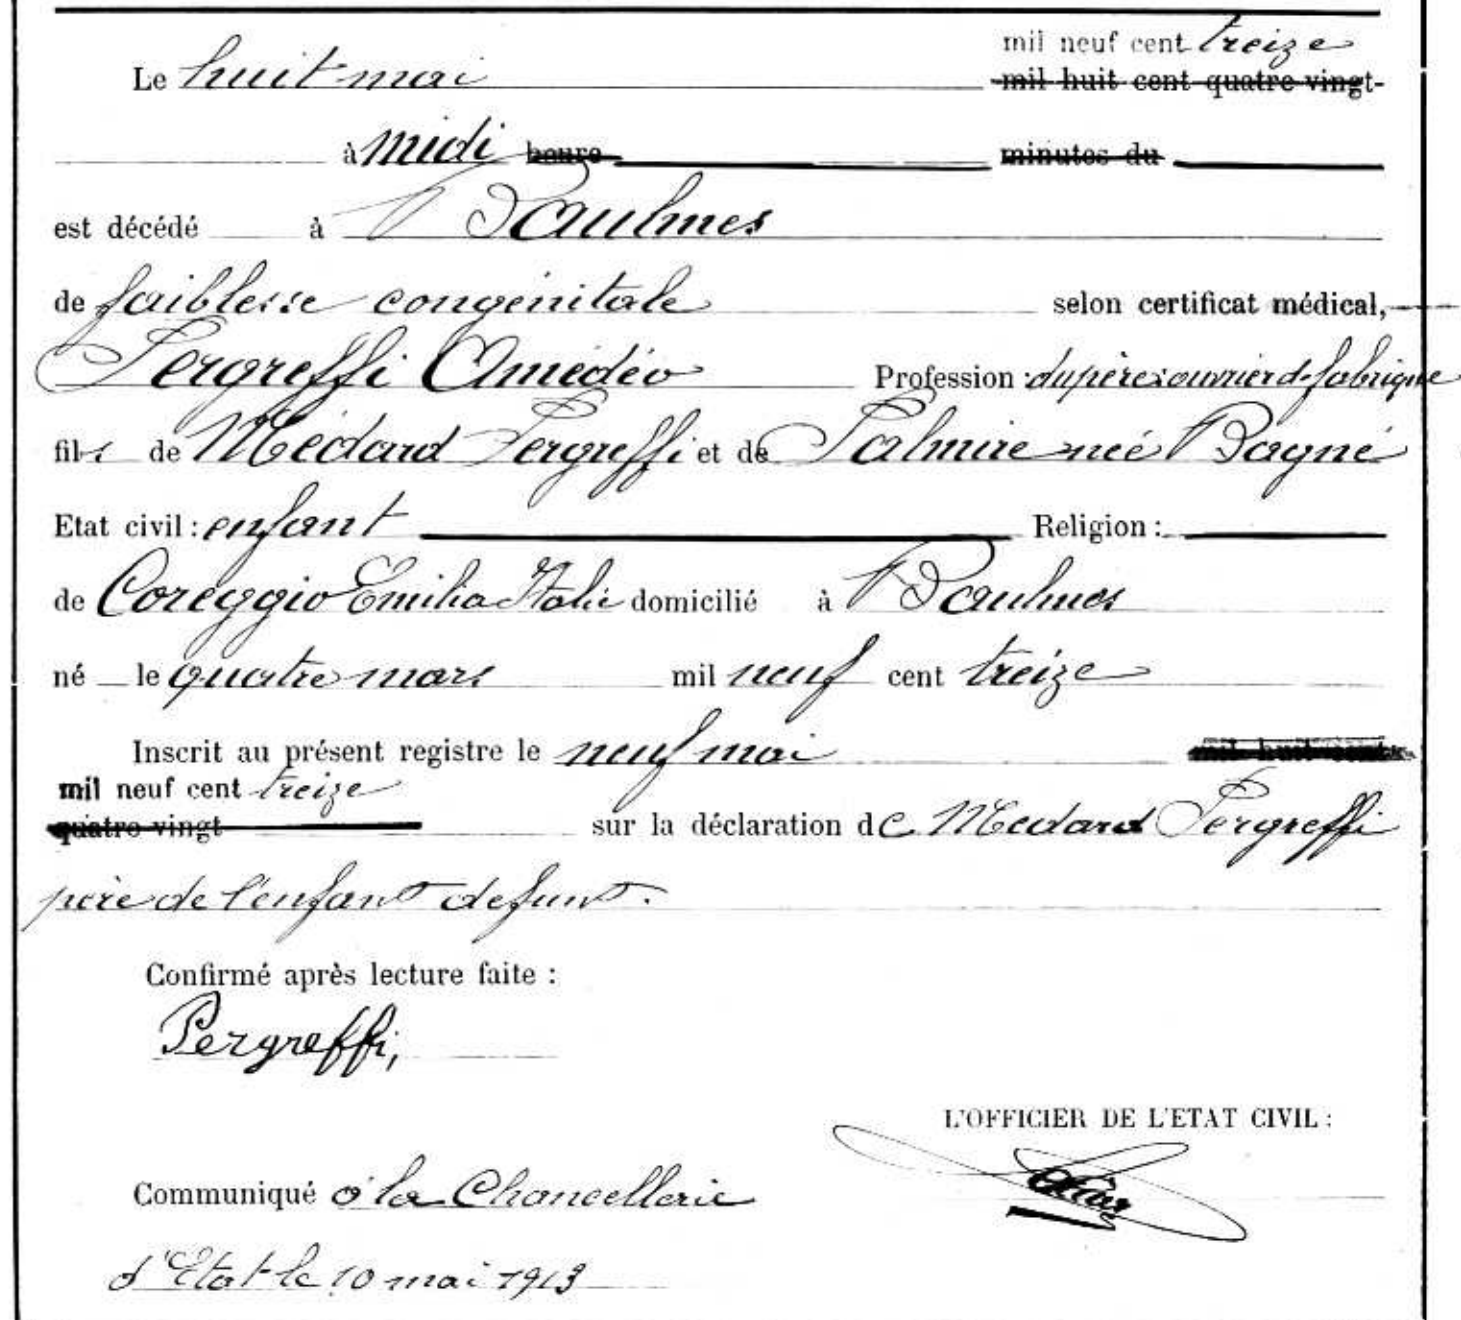 mil neuf cent treize
Le huit mai mil huit cent quatre-vingt-
à midi heure minutes du
est décédé à Baulmes
de faiblesse congénitale selon certificat médical,
Pergreffi Amédéo Profession : du père: ouvrier d. fabrique
fils de Médard Pergreffi et de Palmire née Bagné
Etat civil : enfant Religion :
de Coreggio Emilia Italie domicilié à Baulmes
né le quatre mars mil neuf cent treize
Inscrit au présent registre le neuf mai mil huit cent
mil neuf cent treize
quatre-vingt sur la déclaration de Médard Pergreffi
père de l'enfant defunt.
Confirmé après lecture faite :
Pergreffi,
L'OFFICIER DE L'ETAT CIVIL :
Communiqué à la Chancellerie
d'Etat le 10 mai 1913